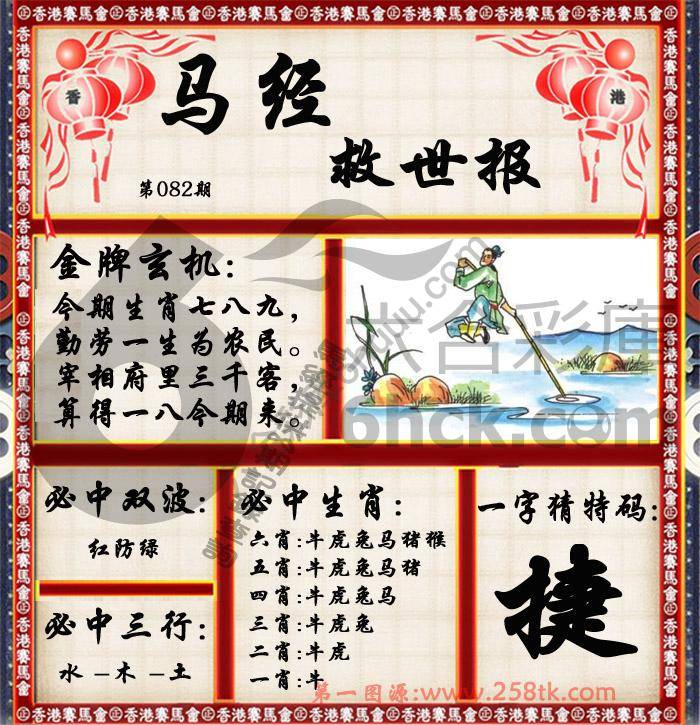 香港賽馬會
香
港
马经
救世报
第082期
金牌玄机:
今期生肖七八九,
勤劳一生为农民。
宰相府里三千客,
算得一八今期来。
六合彩庫
6hck.com
必中双波:
红防绿
必中三行:
水-木-土
必中生肖:
六肖:牛虎兔马猪猴
五肖:牛虎兔马猪
四肖:牛虎兔马
三肖:牛虎兔
二肖:牛虎
一肖:牛
一字猜特码:
捷
第一图源:www.258tk.com